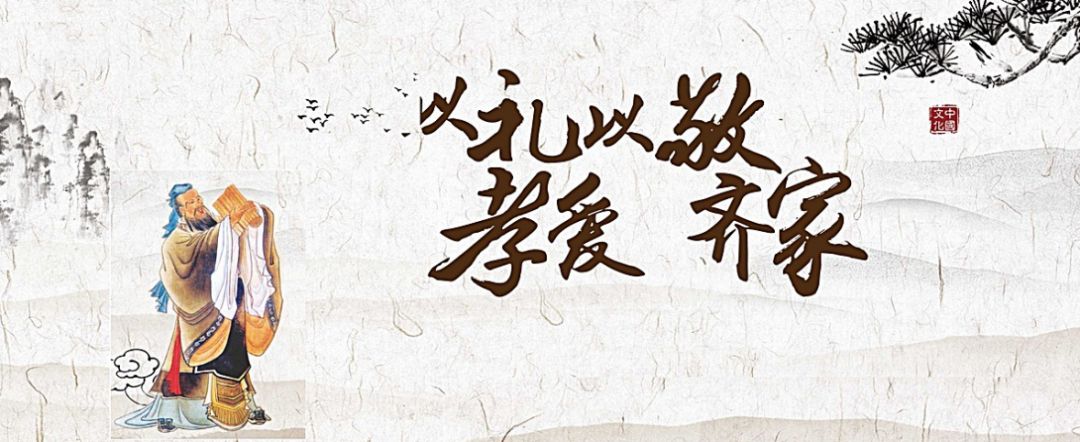 以礼以敬
孝爱 齐家
中國
文化